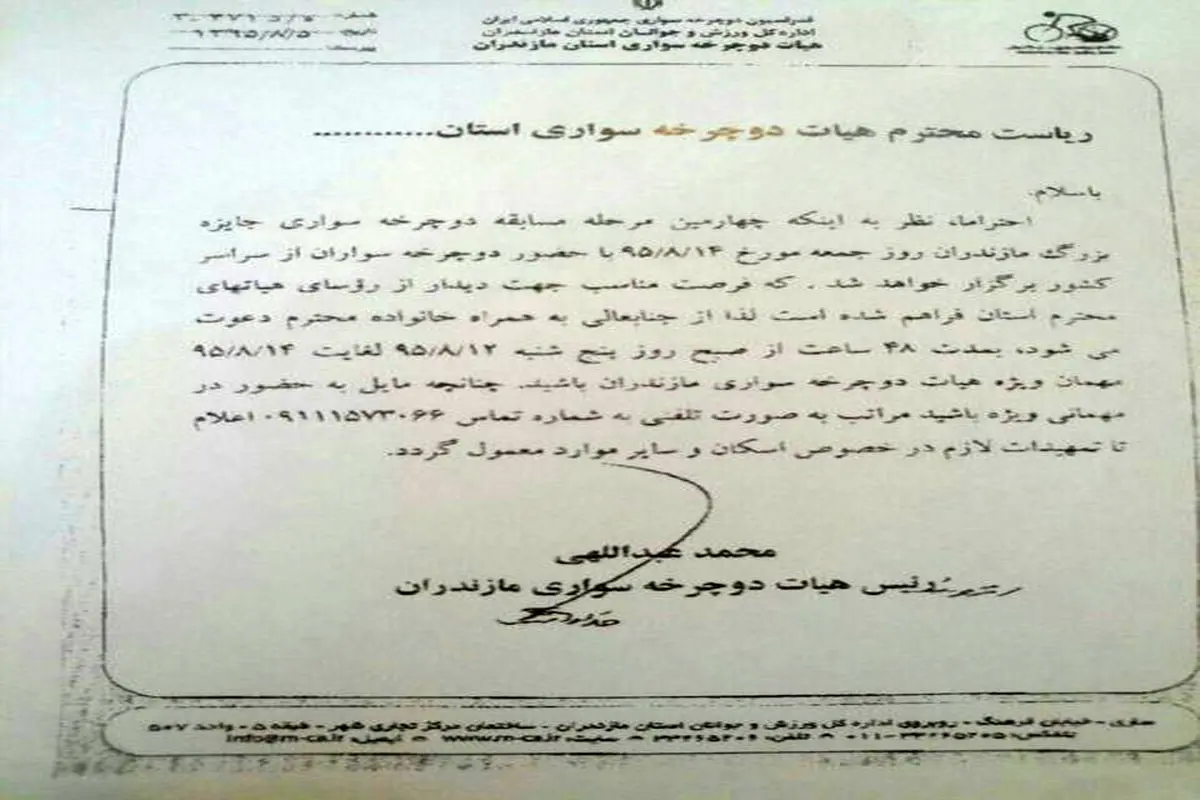 فدراسیون دوچرخه سواری جمهوری اسلامی ایران
اداره کل ورزش و جوانان استان مازندران
هیات دوچرخه سواری استان مازندران
۱۳۹۵/۸/۵
ریاست محترم هیات دوچرخه سواری استان............
باسلام،
احتراما، نظر به اینکه چهارمین مرحله مسابقه دوچرخه سواری جایزه
بزرگ مازندران روز جمعه مورخ ۹۵/۸/۱۴ با حضور دوچرخه سواران از سراسر
کشور برگزار خواهد شد . که فرصت مناسب جهت دیدار از رؤسای هیاتهای
محترم استان فراهم شده است لذا از جنابعالی به همراه خانواده محترم دعوت
می شود، بمدت ۴۸ ساعت از صبح روز پنج شنبه ۹۵/۸/۱۲ لغایت ۹۵/۸/۱۴
مهمان ویژه هیات دوچرخه سواری مازندران باشید. چنانچه مایل به حضور در
مهمانی ویژه باشید مراتب به صورت تلفنی به شماره تماس ۰۹۱۱۱۵۷۳۰۶۶ اعلام
تا تمهیدات لازم در خصوص اسکان و سایر موارد معمول گردد.
محمد عبداللهی
رئیس هیات دوچرخه سواری مازندران
ساری - خیابان فرهنگ - روبروی اداره کل ورزش و جوانان استان مازندران - ساختمان مرکز تجاری شهر - طبقه ۵ - واحد ۵۰۷
تلفکس: تلفن: سایت: www.m-ca.ir ایمیل: info@m-ca.ir